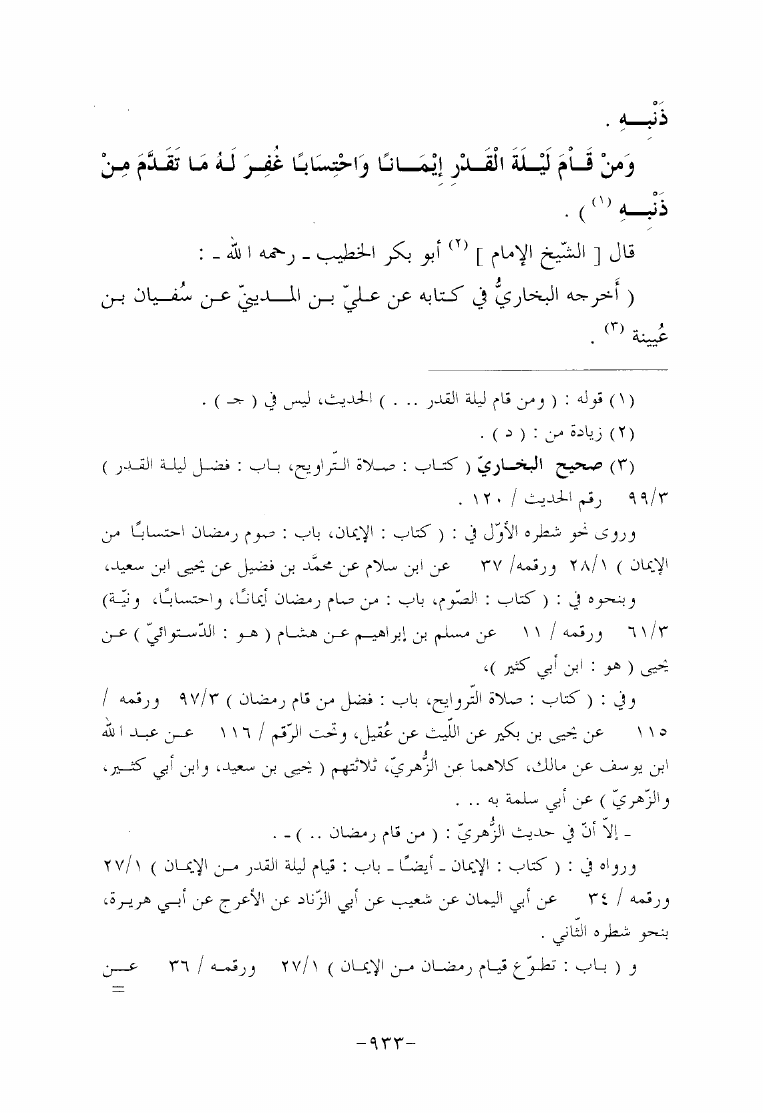 ذَنْبـــهِ .
وَمَنْ قَـاْمَ لَيْـلَةَ الْقَـدْرِ إِيْمَـانًـا وَاحْتِسَابًـا غُفِـرَ لَـهُ مَـا تَقَـدَّمَ مِـنْ
ذَنْبـــهِ (١) ) .
قال [ الشّيخ الإمام ] (٢) أبو بكر الخطيب ـ رحمه الله ـ :
( أخرجه البخاريُّ في كتابه عن عليّ بـن المـدينيّ عـن سُفـيان بـن
عُيينة (٣) .
(١) قوله : ( ومن قام ليلة القدر .. . ) الحديث، ليس في ( جـ ) .
(٢) زيادة من : ( د ) .
(٣) صحيح البخـاريّ ( كتـاب : صـلاة الـتّراويح، بـاب : فضـل ليلـة القـدر )
٩٩/٣ رقم الحديث / ١٢٠ .
وروى نحو شطره الأوّل في : ( كتاب : الإيمان، باب : صوم رمضان احتسابًا من
الإيمان ) ٢٨/١ ورقمه/ ٣٧ عن ابن سلام عن محمَّد بن فضيل عن يحيى ابن سعيد،
وبنحوه في : ( كتاب : الصّوم، باب : من صام رمضان أيمانًـا، واحتسابًـا، ونيّـة)
٦١/٣ ورقمه / ١١ عن مسلم بن إبراهيـم عـن هشـام ( هـو : الدّستوائيّ ) عـن
يحيى ( هو : ابن أبي كثير )،
وفي : ( كتاب : صلاة التّروايح، باب : فضل من قام رمضان ) ٩٧/٣ ورقمه /
١١٥ عن يحيى بن بكير عن اللّيث عن عُقيل، وتحت الرّقم / ١١٦ عـن عبـد الله
ابن يوسف عن مالك، كلاهما عن الزُّهريّ، ثلاثتهم ( يحيى بن سعيد، وابن أبي كثـير،
والزهريّ ) عن أبي سلمة به .. .
ـ إلاّ أنّ في حديث الزُّهريّ : ( من قام رمضان .. ) ـ .
ورواه في : ( كتاب : الإيمان ـ أيضًـا ـ باب : قيام ليلة القدر مـن الإيمـان ) ٢٧/١
ورقمه / ٣٤ عن أبي اليمان عن شعيب عن أبي الزّناد عن الأعرج عن أبـي هريـرة،
بنحو شطره الثّاني .
و ( بـاب : تطـوّع قيـام رمضـان مـن الإيمـان ) ٢٧/١ ورقمـه / ٣٦ عـــن
=
-٩٣٣-